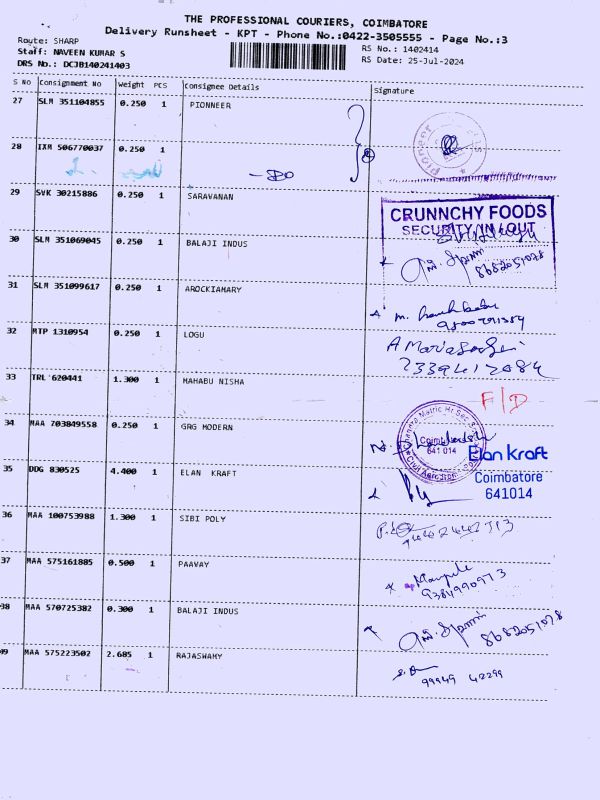 THE PROFESSIONAL COURIERS, COIMBATORE
Delivery Runsheet - KPT - Phone No.:0422-3505555 - Page No.:3
Route: SHARP
Staff: NAVEEN KUMAR S
DRS No.: DCJB140241403
RS No.: 1402414
RS Date: 25-Jul-2024
S No Consignment No Weight PCS Consignee Details Signature
27 SLM 351104855 0.250 1 PIONNEER
28 IXM 506770037 0.250 1
29 SVK 30215886 0.250 1 SARAVANAN
CRUNNCHY FOODS
SECURITY IN / OUT
30 SLM 351069045 0.250 1 BALAJI INDUS
8682051078
31 SLM 351099617 0.250 1 AROCKIAMARY
32 MTP 1310954 0.250 1 LOGU
33 TRL 620441 1.300 1 MAHABU NISHA
F/D
34 MAA 703849558 0.250 1 GRG MODERN
Coimbatore
641 014
35 DDG 830525 4.400 1 ELAN KRAFT
Elan Kraft
Coimbatore
641014
36 MAA 100753988 1.300 1 SIBI POLY
37 MAA 575161885 0.500 1 PAAVAY
9384990973
38 MAA 570725382 0.300 1 BALAJI INDUS
8682051078
39 MAA 575223502 2.685 1 RAJASWAMY
99949 42299